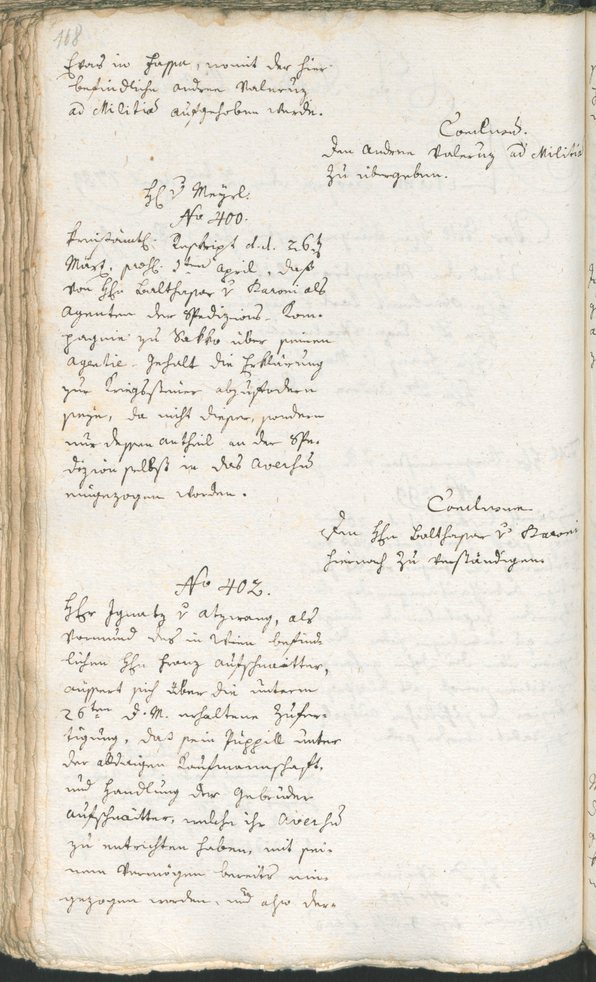 168
Evas in Hassa, womit der hier
befindliche Andree Valeruz
ad Militiã aufgehoben werde.
Conclusũ.
Den Andree Valeruz ad Militiã
zu übergeben.
H. v Meÿrl.
No 400.
Kreisämtl. Reskript d. d. 26t
Mart. prs. 3ten April, daß
von Hrn Balthasar v Karoni als
Agenten der Spedizions-Kom-
pagnie zu Sakko über seinen
Agentie-Gehalt die Erklärung
zur Kriegssteuer abzufodern
seÿe, da nicht dieser, sondern
nur dessen Antheil an der Spe-
dizion selbst in das Aversũ
eingezogen worden.
Conclusum.
Dem Hrn Balthasar v Karoni
hienach zu verständigen.
No 402.
Herr Ignatz v Atzwang, als
Vormund des in Wien befind-
lichen Hrn Franz Aufschnaitter,
äussert sich über die unterm
26ten d. M. erhaltene Zufer-
tigung, daß sein Puppill unter
der alldaigen Kaufmannschaft,
und Handlung der Gebrüder
Aufschnaitter, welche ihr Aversũ
zu entrichten haben, mit sei-
nem Vermögen bereits ein-
gezogen worden, und also der-